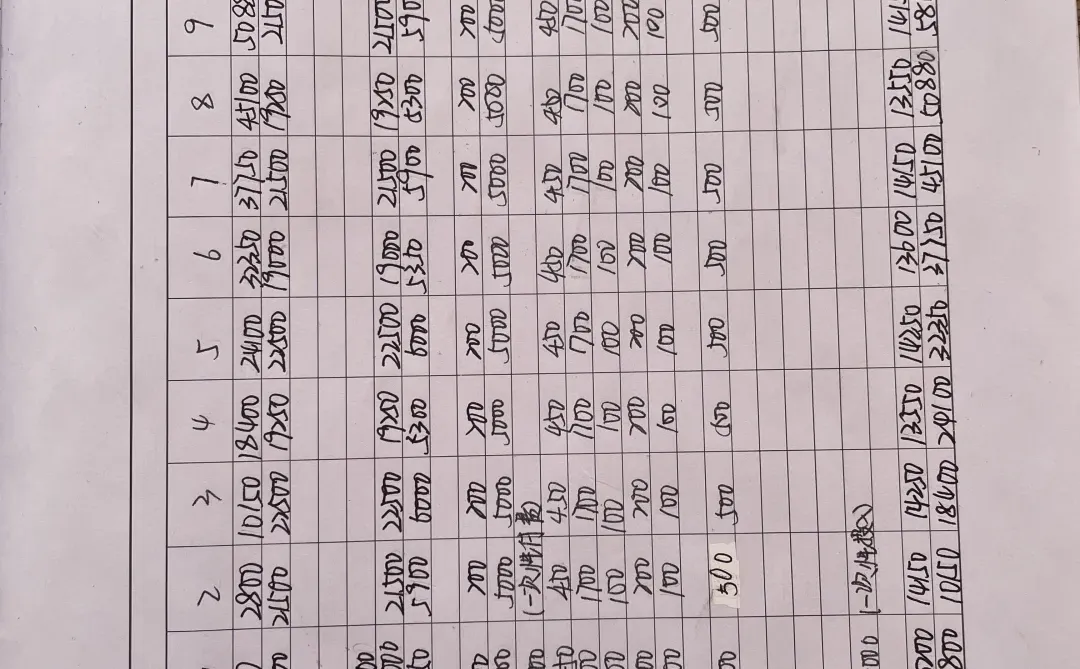 2 3 4 5 6 7 8 9
2800 10150 18400 24100 32350 37750 45100
21500 22500 19250 22500 19000 21500 19250
21500 22500 19250 22500 19000 21500 19250
5900 6000 5300 6000 5350 5900 5300
200 200 200 200 200 200 200 200
5000 5000 5000 5000 5000 5000 5080
(一次性付费)
450 450 450 450 450 450 450 450
1700 1700 1700 1700 1700 1700 1700 1700
100 100 100 100 100 100 100 100
200 200 200 200 200 200 200 200
100 100 100 100 100 100 100 100
500 500 500 500 500 500 500 500
(一次性投入)
14150 14250 13550 14250 13600 14150 13550
10150 18400 24100 32350 37750 45100 50880